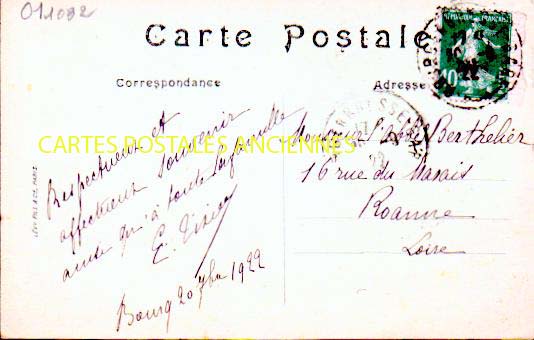 011032
Carte Postale
Correspondance
Adresse
10c
CARTES POSTALES ANCIENNES
Respectueux et
affectueux souvenir
ainsi qu'à toute la famille
E.
Bourg 20 7bre 1922
Monsieur Berthelier
16 rue du Marais
Roanne
Loire